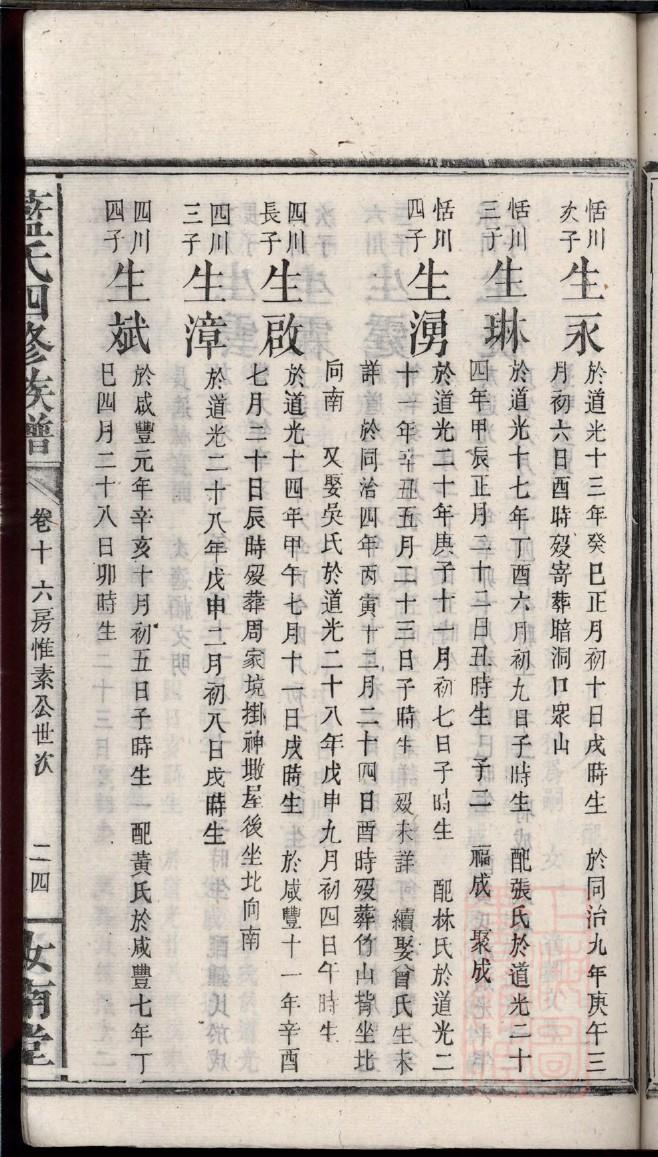 恬川次子 生永 於道光十三年癸巳正月初十日戌時生 於同治九年庚午三
月初六日酉時歿寄葬暗洞口眾山
恬川三子 生琳 於道光十七年丁酉六月初九日子時生 配張氏於道光二十
四年甲辰正月二十二日丑時生 子二 福成 聚成
恬川四子 生湧 於道光二十年庚子十一月初七日子時生 配林氏於道光二
十一年辛丑五月二十三日子時生 歿未詳 續娶曾氏生未
詳 於同治四年丙寅十二月二十四日酉時歿葬竹山背坐北
向南 又娶吳氏於道光二十八年戊申九月初四日午時生
四川長子 生啟 於道光十四年甲午七月十一日戌時生 於咸豐十一年辛酉
七月二十日辰時歿葬周家境掛神墩屋後坐北向南
四川三子 生漳 於道光二十八年戊申二月初八日戌時生
四川四子 生斌 於咸豐元年辛亥十月初五日子時生 配黃氏於咸豐七年丁
巳四月二十八日卯時生
藍氏四修族譜 卷十六房惟素公世次 二四 汝南堂